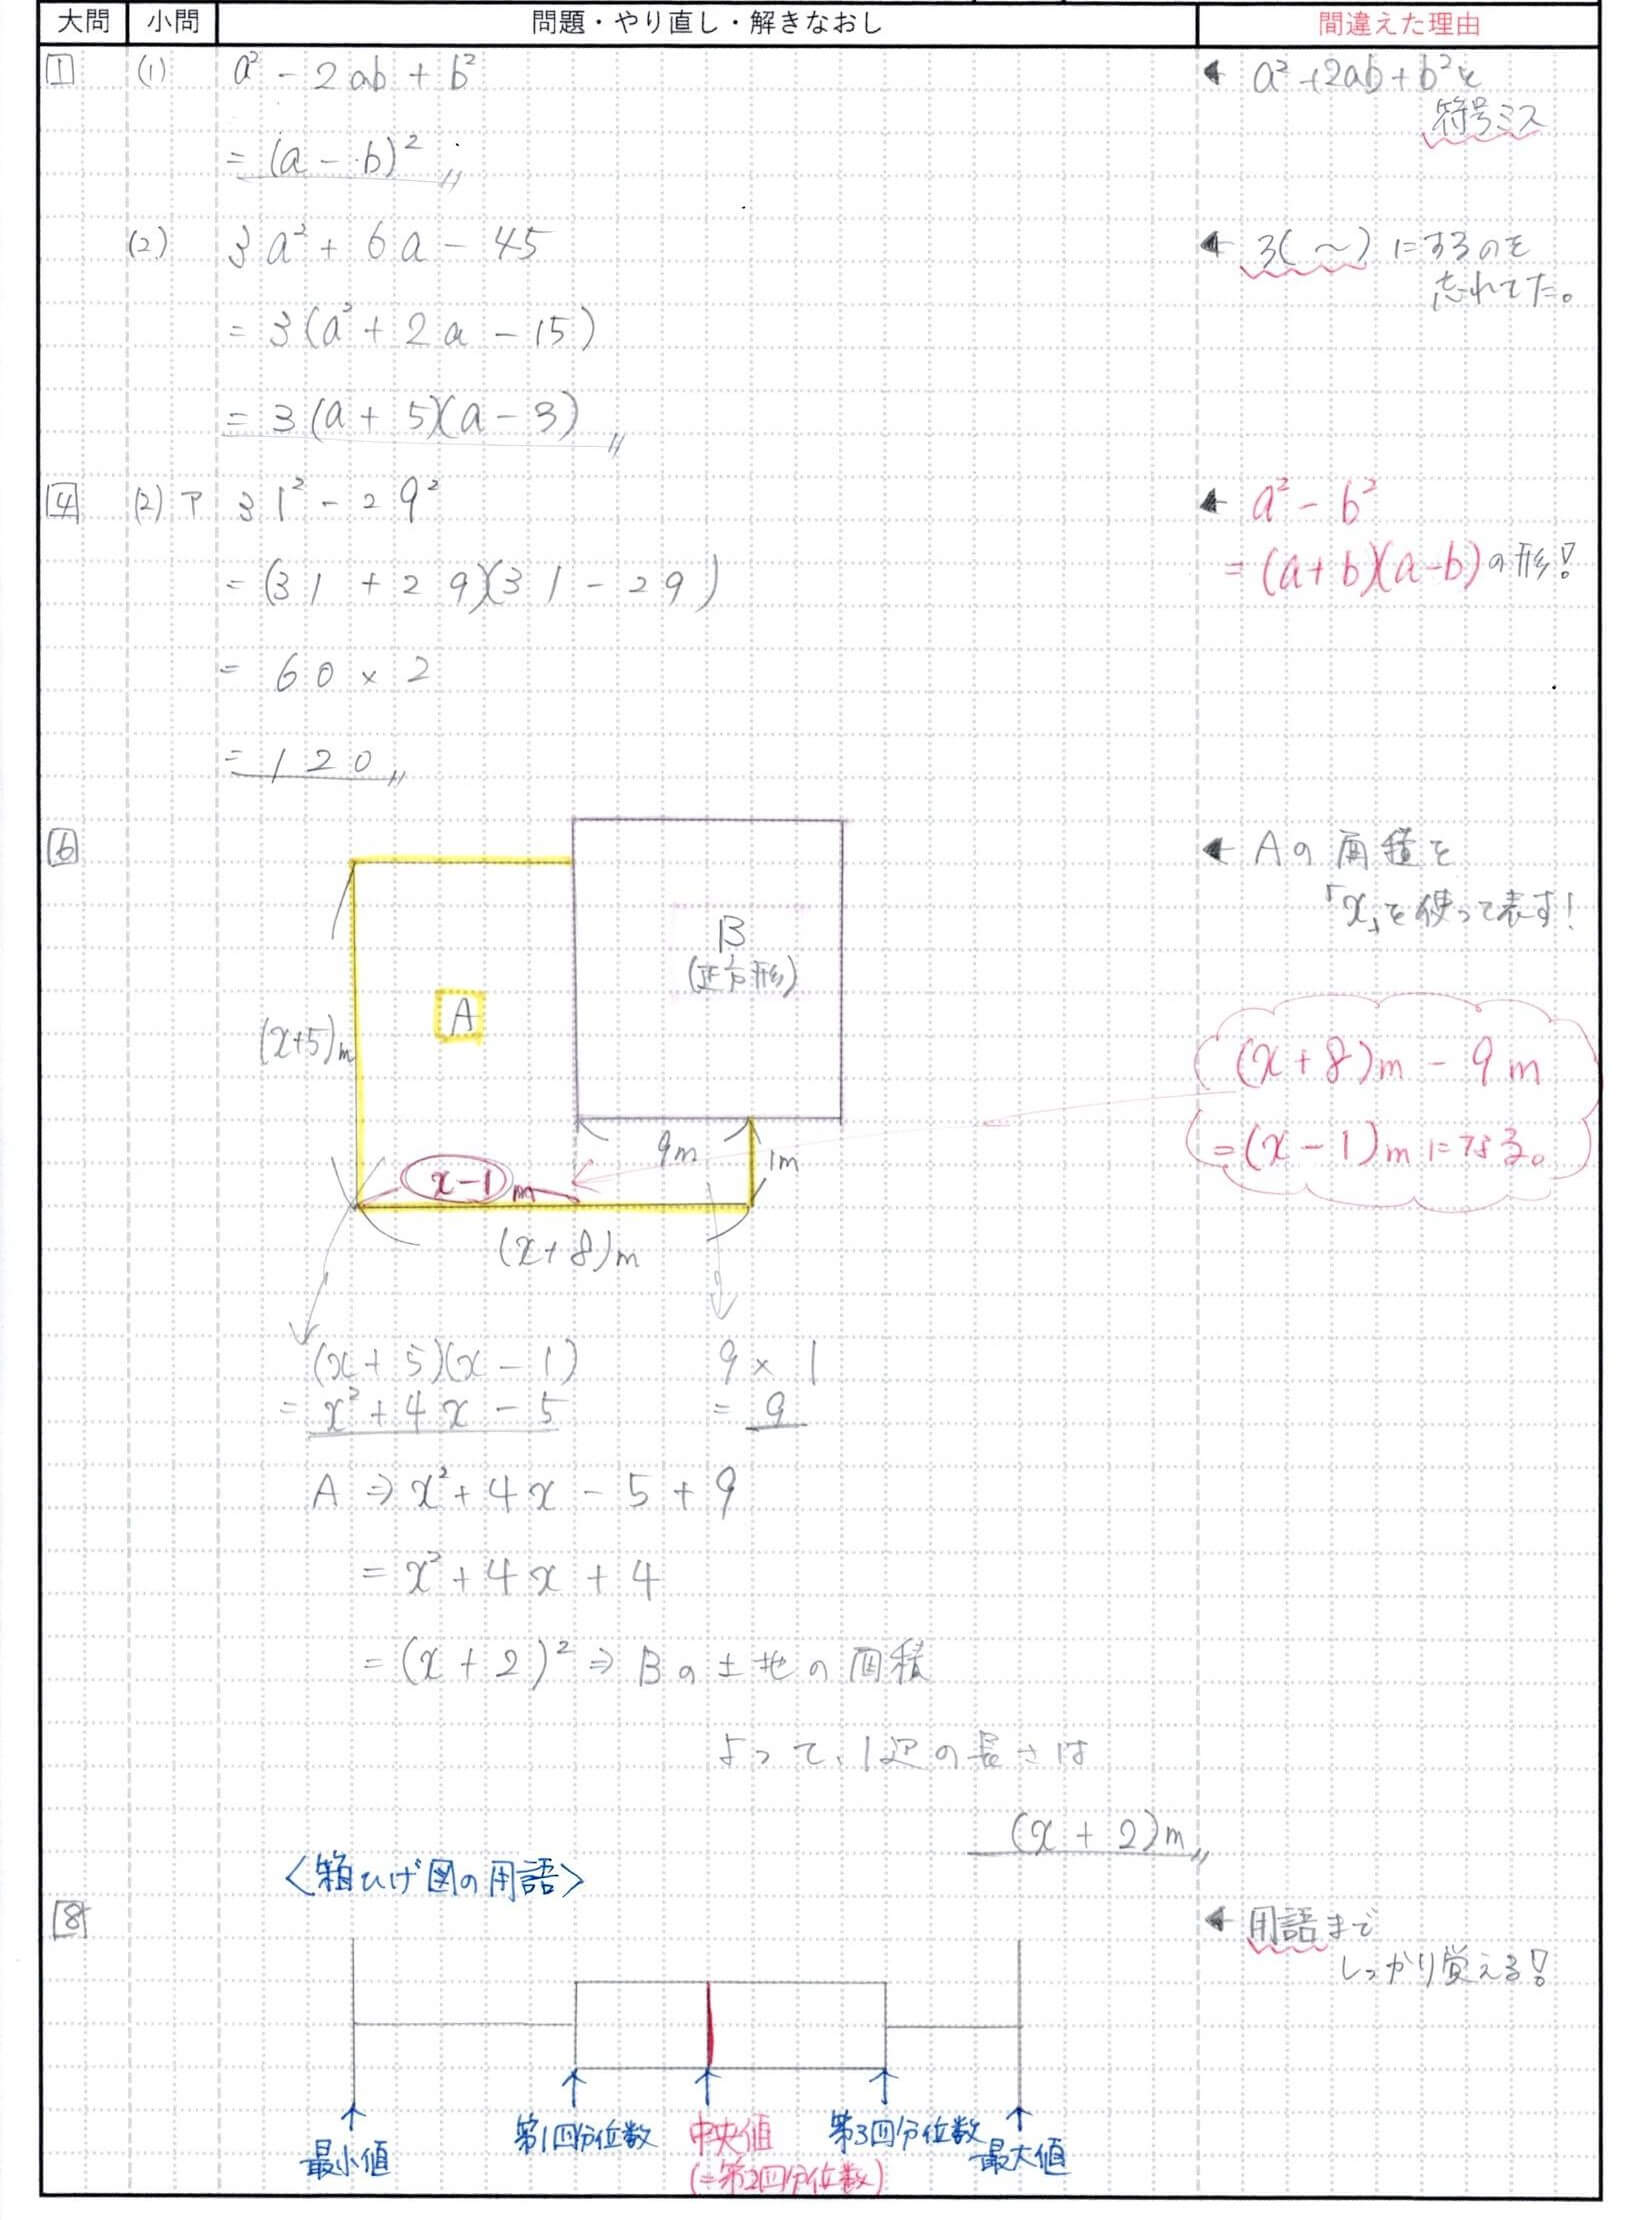 大問 小問 問題・やり直し・解きなおし 間違えた理由
1 (1) a² - 2ab + b²
= (a - b)²
◀ a² + 2ab + b²と
符号ミス
(2) 3a² + 6a - 45
= 3(a² + 2a - 15)
= 3(a + 5)(a - 3)
◀ 3(〜)にするのを
忘れてた。
4 (2) ア 31² - 29²
= (31 + 29)(31 - 29)
= 60 × 2
= 120
◀ a² - b²
= (a+b)(a-b)の形!
6
B
(正方形)
A
(x+5)m
9m
1m
x-1 m
(x+8)m
◀ Aの面積を
「x」を使って表す!
(x+8)m - 9m
=(x-1)mになる。
(x+5)(x-1)
= x² + 4x - 5
9 × 1
= 9
A ⇒ x² + 4x - 5 + 9
= x² + 4x + 4
= (x+2)² ⇒ Bの土地の面積
よって、1辺の長さは
(x+2)m
<箱ひげ図の用語>
8
◀ 用語まで
しっかり覚える!
↑ ↑ ↑ ↑ ↑
最小値
第1四分位数
中央値
(=第2四分位数)
第3四分位数
最大値